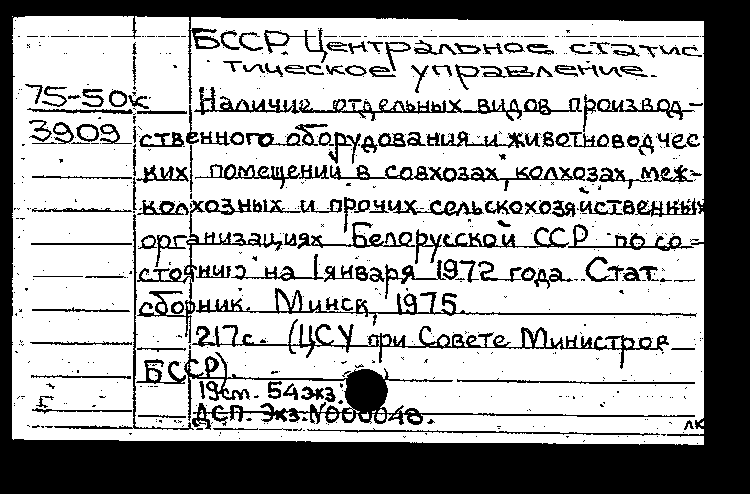 БССР. Центральное статис
тическое управление.
75-50к Наличие отдельных видов производ-
3909 ственного оборудования и животноводчес
ких помещений в совхозах, колхозах, меж-
колхозных и прочих сельскохозяйственных
организациях Белорусской ССР по со-
стоянию на 1 января 1972 года. Стат.
сборник. Минск, 1975.
217с. (ЦСУ при Совете Министров
БССР).
54экз.
ДСП. Экз. №000048.
лк